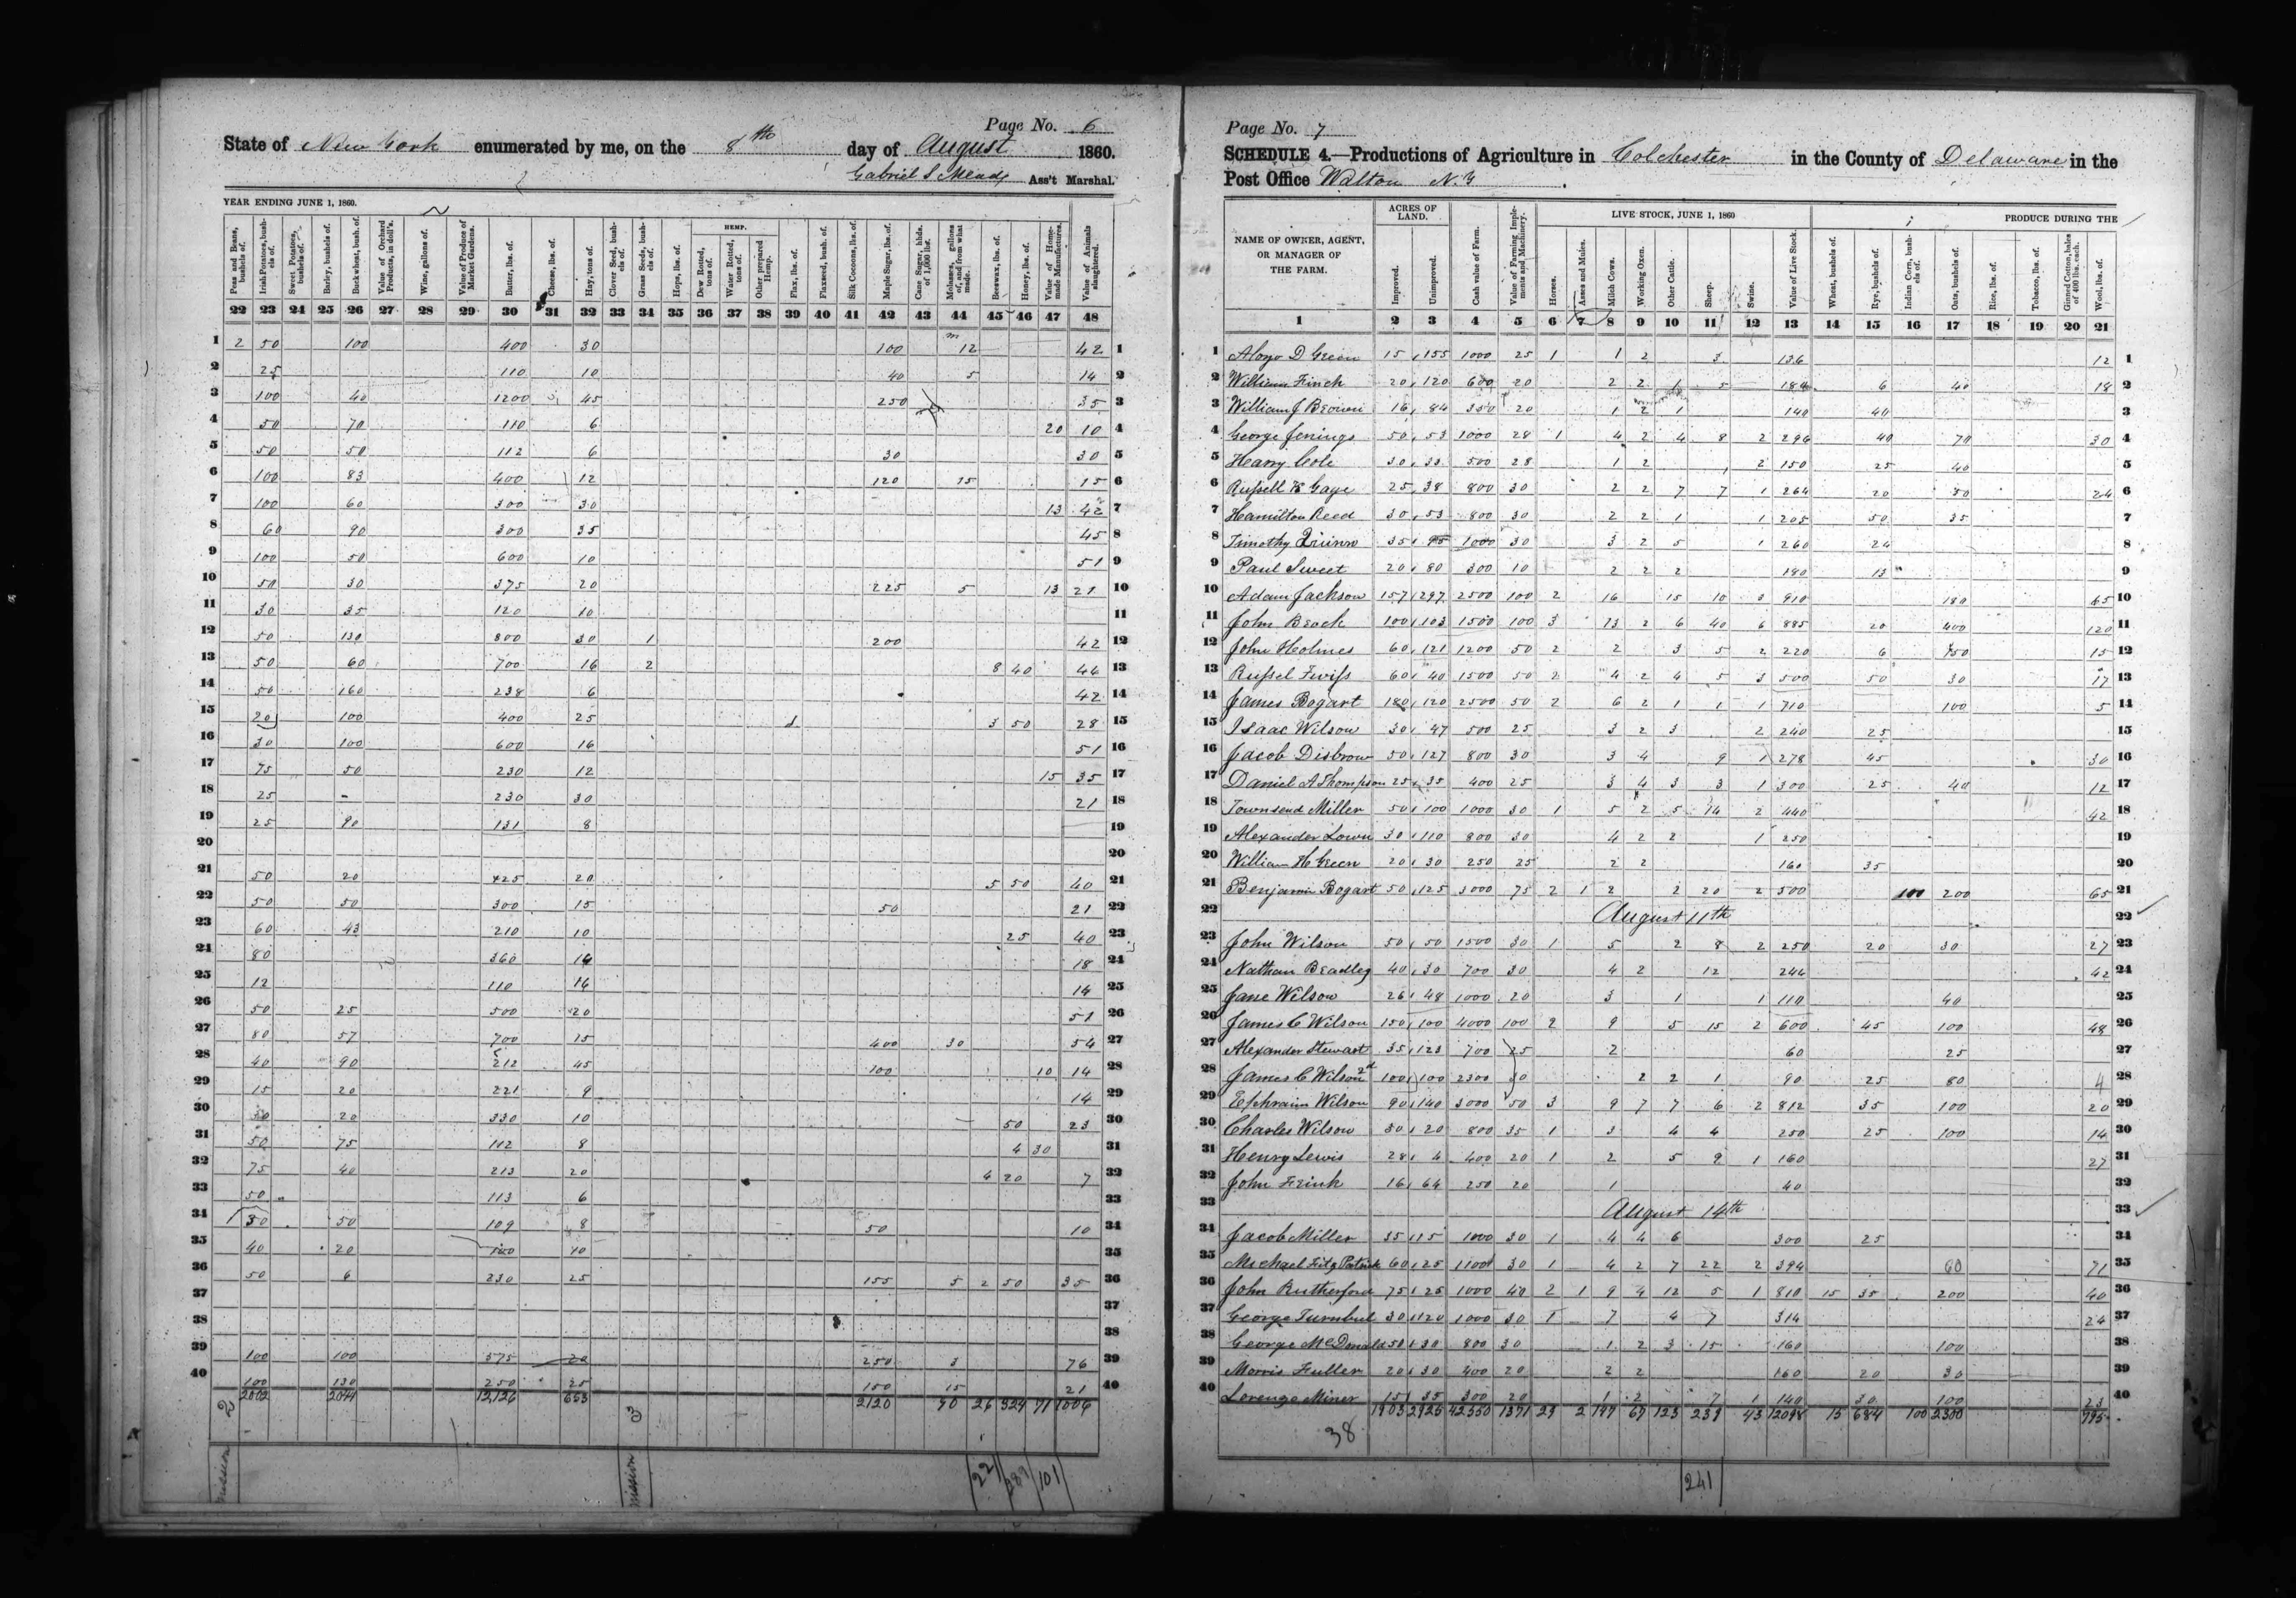 Page No. 6
State of New York enumerated by me, on the 8th day of August 1860.
Gabriel S Mead Ass't Marshal.
YEAR ENDING JUNE 1, 1860.
HEMP.
Peas and Beans, bushels of. Irish Potatoes, bushels of. Sweet Potatoes, bushels of. Barley, bushels of. Buckwheat, bush. of. Value of Orchard Products, in doll's. Wine, gallons of. Value of Produce of Market Gardens. Butter, lbs. of. Cheese, lbs. of. Hay, tons of. Clover Seed, bushels of. Grass Seeds, bushels of. Hops, lbs. of. Dew Rotted, tons of. Water Rotted, tons of. Other prepared Hemp. Flax, lbs. of. Flaxseed, bush. of. Silk Cocoons, lbs. of. Maple Sugar, lbs. of. Cane Sugar, hhds. of 1,000 lbs. Molasses, gallons of, and from what made. Beeswax, lbs. of. Honey, lbs. of. Value of Home-made Manufactures. Value of Animals slaughtered.
22 23 24 25 26 27 28 29 30 31 32 33 34 35 36 37 38 39 40 41 42 43 44 45 46 47 48
1 2 50 100 400 30 100 m 12 42 1
2 25 110 10 40 5 14 2
3 100 40 1200 45 250 35 3
4 50 70 110 6 20 10 4
5 50 50 112 6 30 30 5
6 100 83 400 12 120 15 15 6
7 100 60 300 30 13 42 7
8 60 90 300 35 45 8
9 100 50 600 10 51 9
10 50 30 375 20 225 5 13 21 10
11 30 35 120 10 11
12 50 130 800 30 1 200 42 12
13 50 60 700 16 2 8 40 44 13
14 50 160 238 6 42 14
15 20 100 400 25 3 50 28 15
16 30 100 600 16 51 16
17 75 50 230 12 15 35 17
18 25 - 230 30 21 18
19 25 90 131 8 19
20 20
21 50 20 425 20 5 50 40 21
22 50 50 300 15 50 21 22
23 60 43 210 10 25 40 23
24 80 360 14 18 24
25 12 110 14 14 25
26 50 25 500 20 51 26
27 80 57 700 15 400 30 54 27
28 40 90 212 45 100 10 14 28
29 15 20 221 9 14 29
30 30 20 330 10 50 23 30
31 50 75 112 8 4 30 31
32 75 40 213 20 4 20 7 32
33 50 113 6 33
34 30 50 109 8 50 10 34
35 40 20 100 10 35
36 50 6 230 25 155 5 2 50 35 36
37 37
38 38
39 100 100 575 20 250 3 76 39
40 100 130 250 25 150 15 21 40
2 2002 2044 12,126 653 3 2120 90 26 324 71 1006
22 289 101
Page No. 7
SCHEDULE 4.—Productions of Agriculture in Colchester in the County of Delaware in the
Post Office Walton N.Y
NAME OF OWNER, AGENT, OR MANAGER OF THE FARM.
ACRES OF LAND. LIVE STOCK, JUNE 1, 1860 PRODUCE DURING THE
Improved. Unimproved. Cash value of Farm. Value of Farming Implements and Machinery. Horses. Asses and Mules. Milch Cows. Working Oxen. Other Cattle. Sheep. Swine. Value of Live Stock. Wheat, bushels of. Rye, bushels of. Indian Corn, bushels of. Oats, bushels of. Rice, lbs. of. Tobacco, lbs. of. Ginned Cotton, bales of 400 lbs. each. Wool, lbs. of.
1 2 3 4 5 6 7 8 9 10 11 12 13 14 15 16 17 18 19 20 21
1 Alozo D Green 15 155 1000 25 1 1 2 3 136 12 1
2 William Finch 20 120 600 20 2 2 1 5 184 6 40 18 2
3 William J Brown 16 84 350 20 1 2 1 140 40 3
4 George Jenings 50 53 1000 28 1 4 2 4 8 2 296 40 70 30 4
5 Harry Cole 30 33 500 28 1 2 2 150 25 40 5
6 Russell B Gage 25 38 800 30 2 2 7 7 1 264 20 50 24 6
7 Hamilton Reed 30 53 800 30 2 2 1 1 205 50 35 7
8 Timothy Quinn 35 95 1000 30 3 2 5 1 260 24 8
9 Paul Sweet 20 80 300 10 2 2 2 180 13 9
10 Adam Jackson 157 297 2500 100 2 16 15 10 3 910 180 65 10
11 John Brock 100 103 1500 100 3 13 2 6 40 6 885 20 400 120 11
12 John Holmes 60 121 1200 50 2 2 3 5 2 220 6 750 15 12
13 Russel Twiss 60 40 1500 50 2 4 2 4 5 3 500 50 30 17 13
14 James Bogart 180 120 2500 50 2 6 2 1 1 1 710 100 5 14
15 Isaac Wilson 30 47 500 25 3 2 3 2 240 25 15
16 Jacob Disbrow 50 127 800 30 3 4 9 1 278 45 30 16
17 Daniel A Thompson 25 35 400 25 3 4 3 3 1 300 25 40 12 17
18 Townsend Miller 50 100 1000 30 1 5 2 5 14 2 440 42 18
19 Alexander Lown 30 110 800 30 4 2 2 1 250 19
20 William H Green 20 30 250 25 2 2 160 35 20
21 Benjamin Bogart 50 125 3000 75 2 1 2 2 20 2 500 100 200 65 21
22 August 11th 22
23 John Wilson 50 50 1500 30 1 5 2 8 2 250 20 30 27 23
24 Nathan Bradley 40 30 700 30 4 2 12 246 42 24
25 Jane Wilson 26 48 1000 20 3 1 1 110 40 25
26 James C Wilson 150 100 4000 100 2 9 5 15 2 600 45 100 48 26
27 Alexander Stewart 35 123 700 25 2 60 25 27
28 James C Wilson 2d 100 100 2300 30 2 2 1 90 25 80 4 28
29 Ephraim Wilson 90 140 3000 50 3 9 7 7 6 2 812 35 100 20 29
30 Charles Wilson 50 20 800 35 1 3 4 4 250 25 100 14 30
31 Henry Lewis 28 4 400 20 1 2 5 9 1 160 27 31
32 John Frink 16 64 250 20 1 40 32
33 August 14th 33
34 Jacob Miller 35 15 1000 30 1 4 4 6 300 25 34
35 Michael Fitz Patrick 60 25 1100 30 1 4 2 7 22 2 394 60 71 35
36 John Rutherford 75 25 1000 40 2 1 9 4 12 5 1 810 15 35 200 40 36
37 George Turnbul 30 120 1000 30 1 7 4 7 314 24 37
38 George McDonald 50 30 800 30 1 2 3 15 160 100 38
39 Morris Fuller 20 30 400 20 2 2 160 20 30 39
40 Lorenzo Miner 15 35 300 20 1 2 7 1 140 30 100 23 40
1903 2926 42550 1371 29 2 147 69 123 239 43 12098 15 684 100 2300 795
38
241